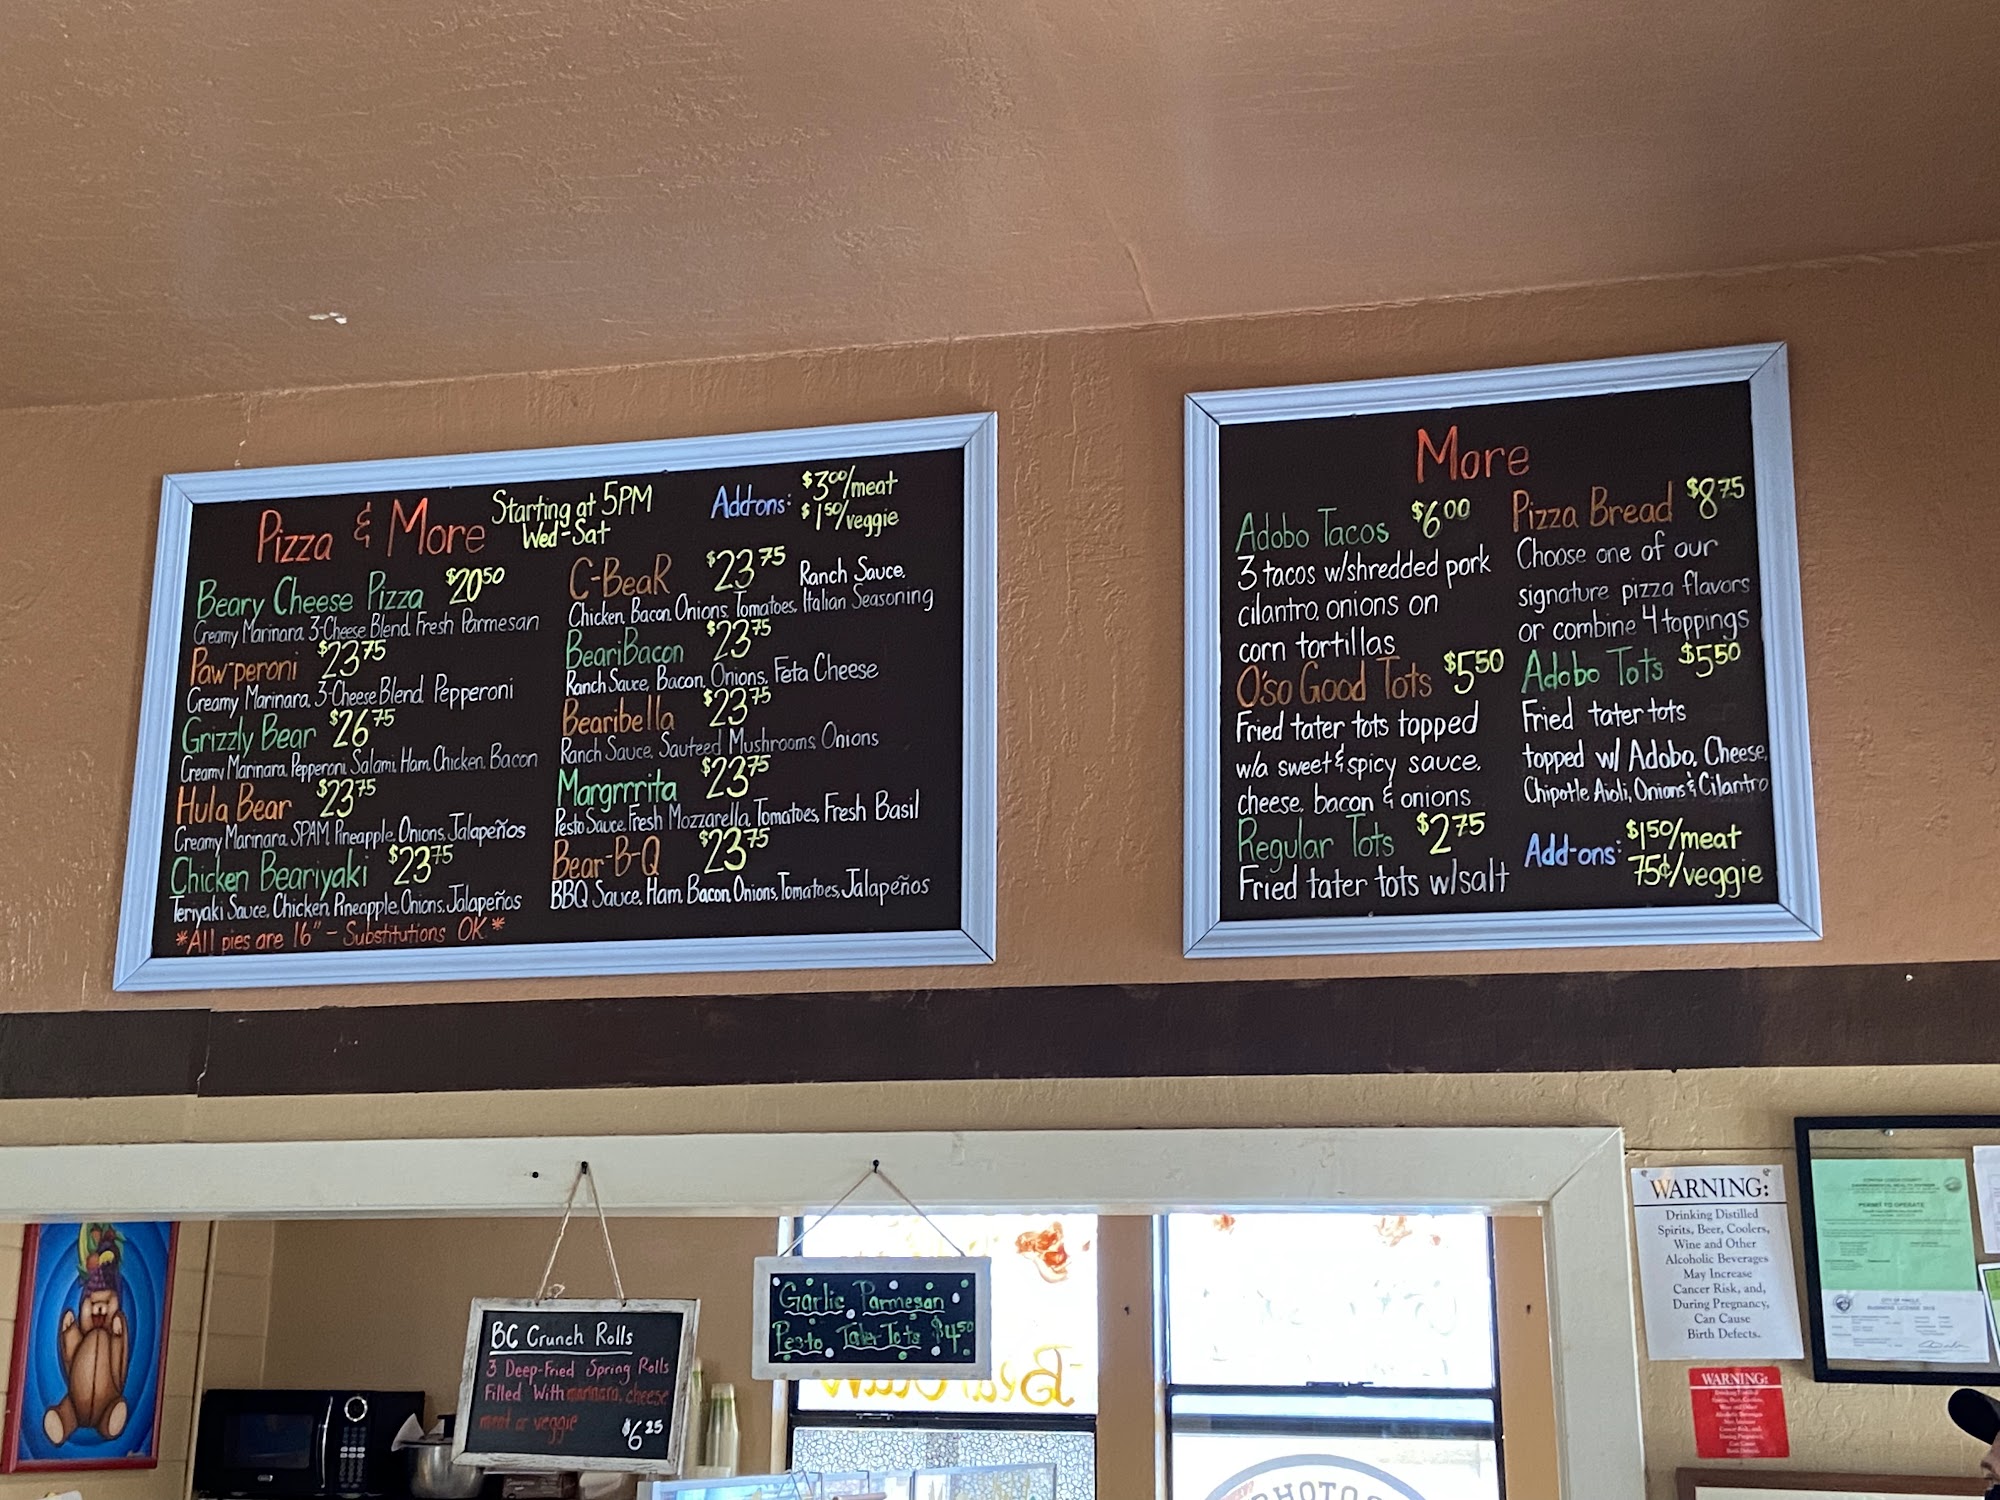 Pizza & More Starting at 5PM
Wed-Sat
Add-ons: $3.00/meat
$1.50/veggie
Beary Cheese Pizza $20.50
Creamy Marinara, 3-Cheese Blend, Fresh Parmesan
Paw-peroni $23.75
Creamy Marinara, 3-Cheese Blend, Pepperoni
Grizzly Bear $26.75
Creamy Marinara, Pepperoni, Salami, Ham, Chicken, Bacon
Hula Bear $23.75
Creamy Marinara, SPAM, Pineapple, Onions, Jalapeños
Chicken Beariyaki $23.75
Teriyaki Sauce, Chicken, Pineapple, Onions, Jalapeños
*All pies are 16" - Substitutions OK*
C-BeaR $23.75 Ranch Sauce,
Chicken, Bacon, Onions, Tomatoes, Italian Seasoning
BeariBacon $23.75
Ranch Sauce, Bacon, Onions, Feta Cheese
Bearibella $23.75
Ranch Sauce, Sauteed Mushrooms, Onions
Margrrrita $23.75
Pesto Sauce, Fresh Mozzarella, Tomatoes, Fresh Basil
Bear-B-Q $23.75
BBQ Sauce, Ham, Bacon, Onions, Tomatoes, Jalapeños
More
Adobo Tacos $6.00
3 tacos w/shredded pork
cilantro, onions on
corn tortillas
O'so Good Tots $5.50
Fried tater tots topped
w/a sweet & spicy sauce,
cheese, bacon & onions
Regular Tots $2.75
Fried tater tots w/salt
Pizza Bread $8.75
Choose one of our
signature pizza flavors
or combine 4 toppings
Adobo Tots $5.50
Fried tater tots
topped w/ Adobo, Cheese,
Chipotle Aioli, Onions & Cilantro
Add-ons: $1.50/meat
75¢/veggie
BC Crunch Rolls
3 Deep-Fried Spring Rolls
Filled With marinara, cheese
meat or veggie
$6.25
Garlic Parmesan
Pesto Tater Tots $4.50
WARNING:
Drinking Distilled
Spirits, Beer, Coolers,
Wine and Other
Alcoholic Beverages
May Increase
Cancer Risk, and,
During Pregnancy,
Can Cause
Birth Defects.
WARNING:
Drinking Distilled
Spirits, Beer, Coolers,
Wine and Other
Alcoholic Beverages
May Increase
Cancer Risk, and,
During Pregnancy,
Can Cause
Birth Defects.
PERMIT TO OPERATE